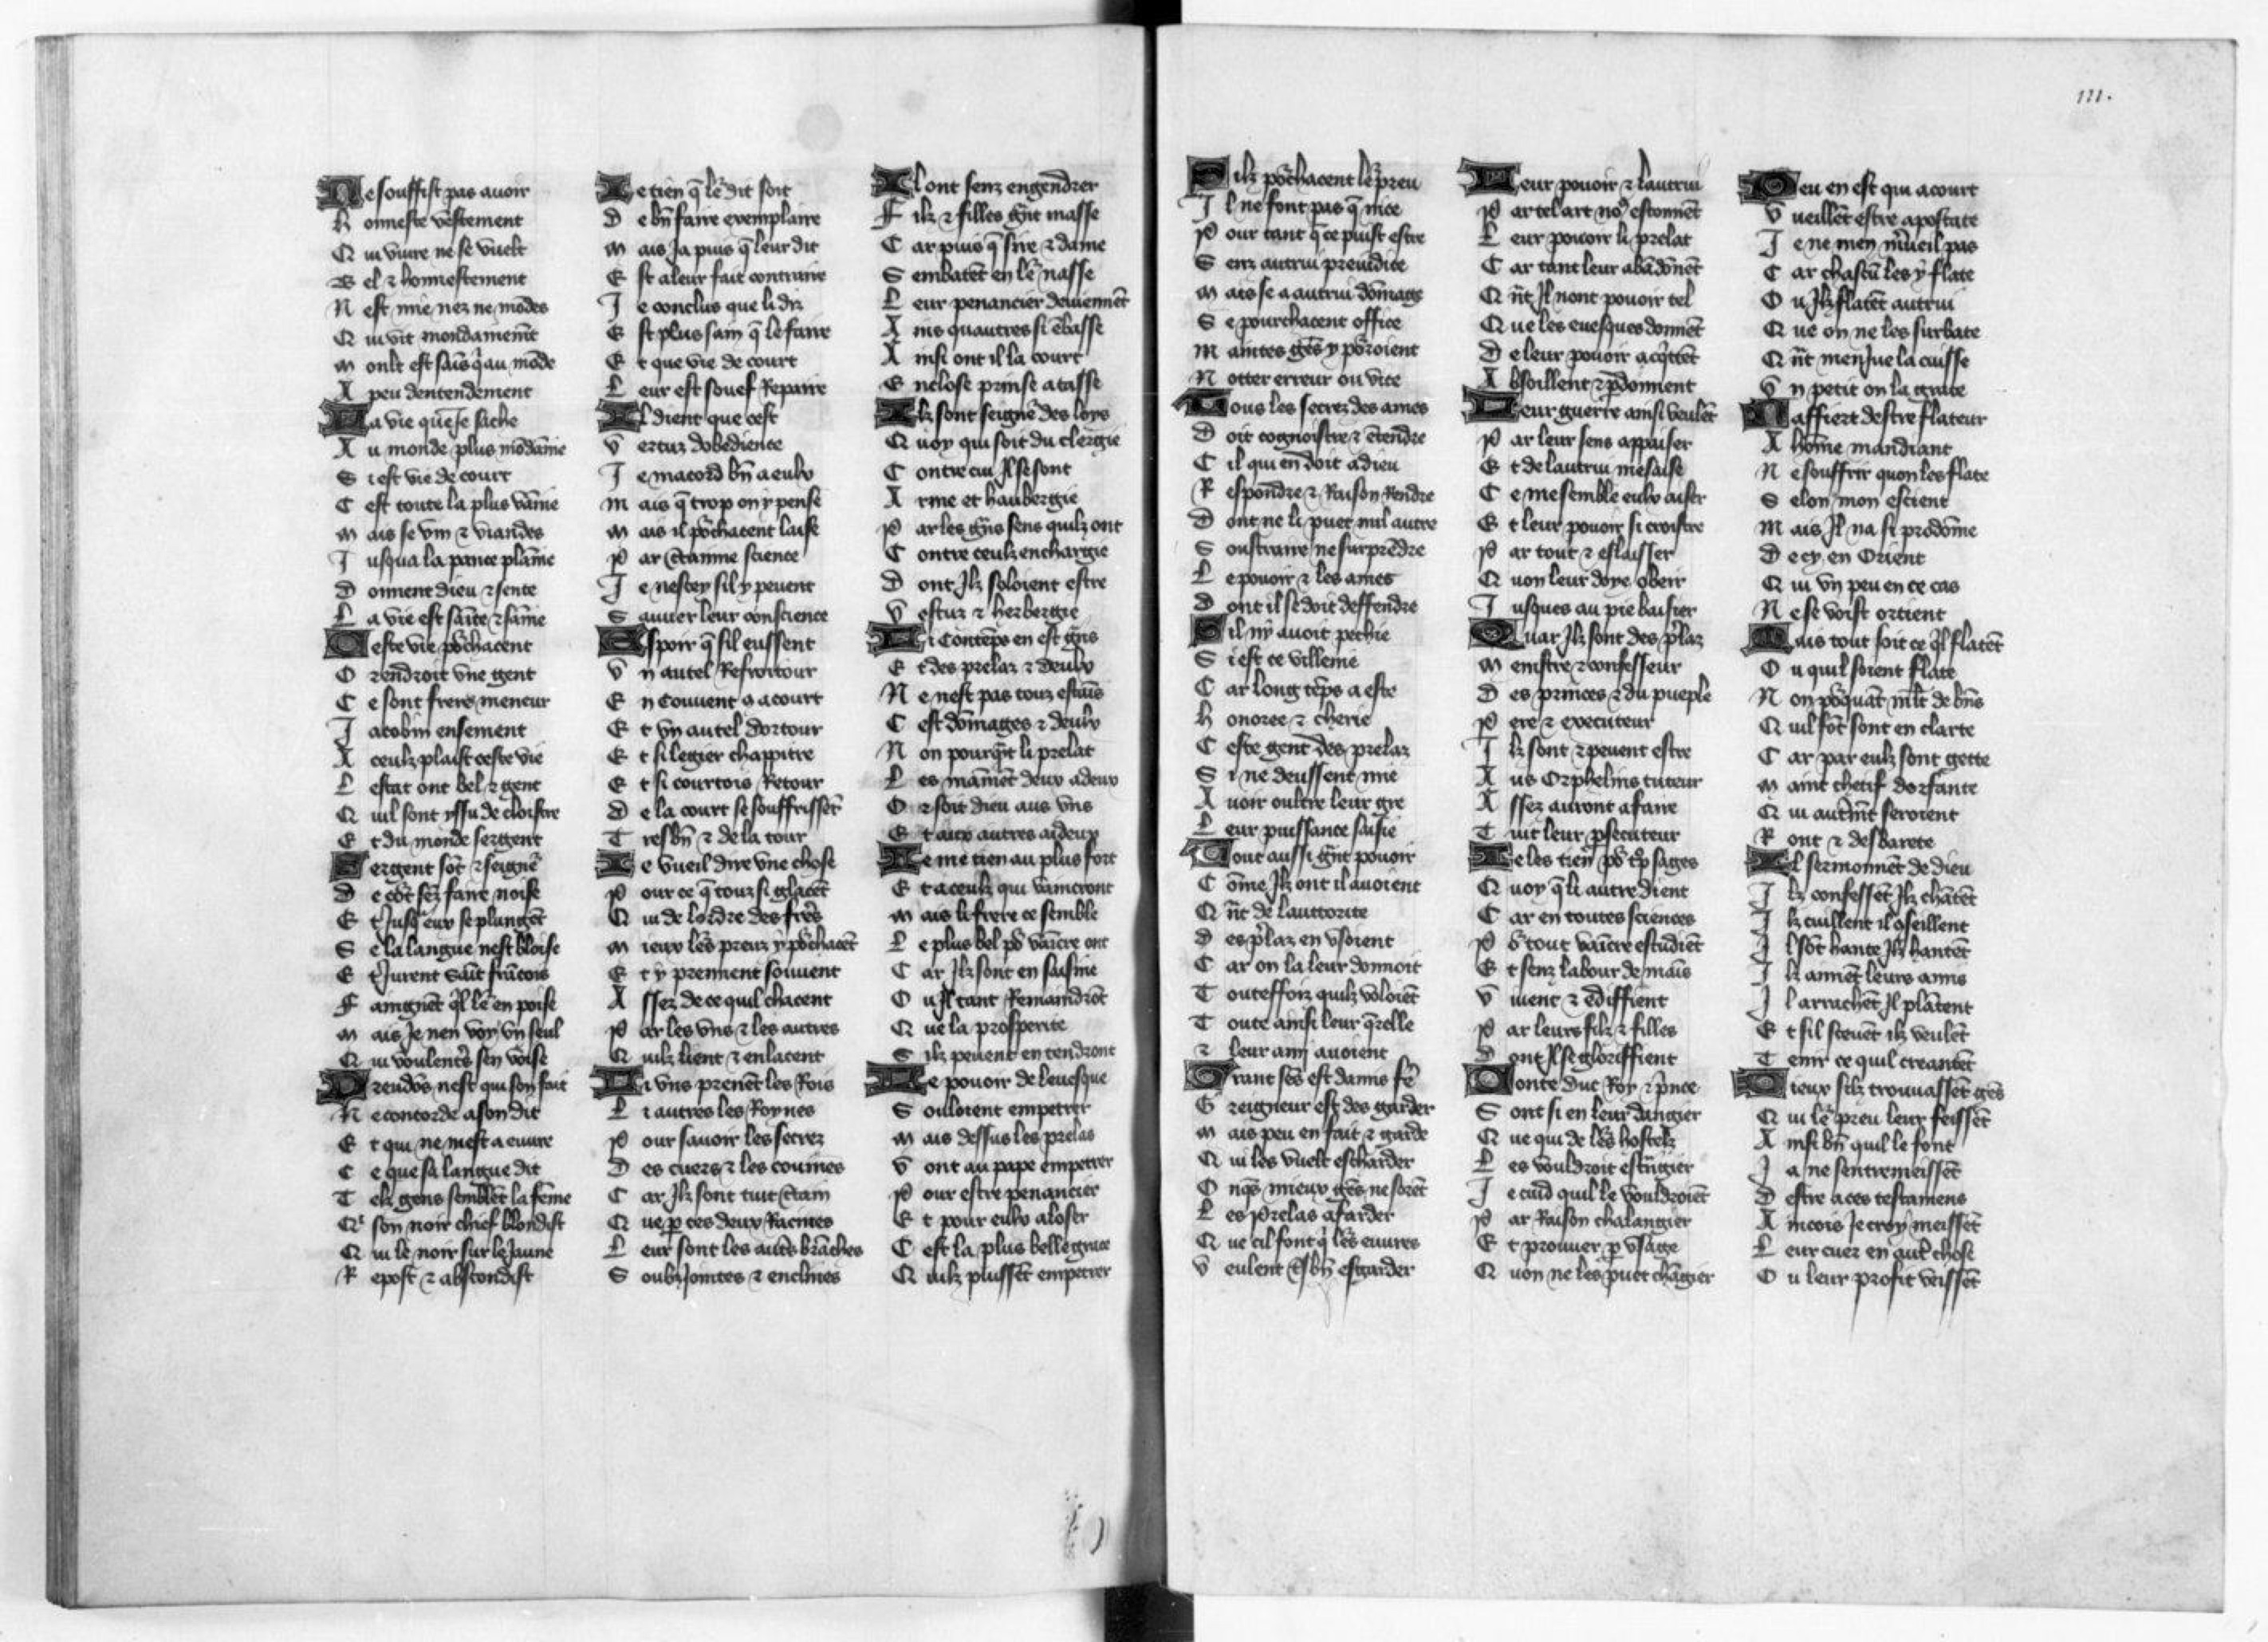 Ne souffist pas auoir
Honneste vestement
Qui viure ne se vuelt
Bel ⁊ honnestement
Nest mie nez ne modes
Qui vit mondainemēt
Moult est sāīs q̇ au mōde
A peu dentendement
La vie que Je sache
Au monde plus mōdāīne
Si est vie de court
Cest toute la plus vaīne
Mais se vin ⁊ viandes
Jusqua la pance plaīne
Donnent dieu ⁊ sente
La vie est saīte ⁊ saīne
Ceste vie po᷑chacent
Orendroit vne gent
Ce sont freres meneur
Jacobin ensement
A ceulx plaist ceste vie
Lestat ont bel ⁊ gent
Quil sont yssu de cloistre
Et du monde sergent
Sergent sōt ⁊ seigne᷑
De cōt sēz faire noise
Et Jusq̄ eux se plungēt
Se la langue nest bloise
Et Jurent saīt frācois
Faingnēt q̇l le᷑ en poise
Mais Je nen voy vn seul
Qui voulent̉s sen voise
Preudōs nest qui son fait
Ne concorde a son dit
Et qui ne mest a euure
Ce que sa langue dit
Telx gens semblēt la fēme
Qⁱ son noir chief blondist
Qui le noir sur le Jaune
Repost ⁊ abscondist
Je tien q̄ le᷑ dit soit
De bn̄ faire exemplaire
Mais Ja puis q̄ leur dit
Est a leur fait contraire
Je conclus que li diz
Est plus sain q̄ le faire
Et que vie de court
Leur est souef Repaire
Il dient que cest
Vertuz dobedience
Je macord bn̄ a eulx
Mais q̄ trop on y pense
Mais il po᷑chacent laise
Par c̄tainne science
Je ne scey sil y peuent
Sauuer leur conscience
Espoir q̄ sil eussent
Vn autel Refroitour
En Couuent q̄ a court
Et vn autel dortour
Et si legier chappitre
Et si courtois Retour
De la court se souffrissēt
Tres bn̄ ⁊ de la tour
Je vueil dire vne chose
Pour ce q̄ touz si glacēt
Qui de lordre des frēs
Mieux le᷑s preuz y po᷑chacēt
Et y prennent souuent
Assez de ce quil chacent
Par les vns ⁊ les autres
Quilz lient ⁊ enlacent
Li vns prenēt les Rois
Li autres les Roynes
Pour sauoir les secrez
Des cuers ⁊ les couines
Car Jlz sont tuit c̄tain
Que ꝑ ces deux Racines
Leur sont les aut̉s brāches
Soubz Jointes ⁊ enclines
Il ont senz engendrer
Filz ⁊ filles gn̄t masse
Car puis q̄ sire ⁊ dame
Sembatēt en le᷑ nasse
Leur penancier deuiennēt
Ains quautres si ēbasse
Ainsi ont il la court
Enclose prinse a tasse
Ilz sont seigne᷑ des loys
Quoy qui soit du clergie
Contre cui Jl se sont
Arme et haubergie
Par les gn̄s sens quilz ont
Contre ceulx enchargie
Dont Jlz soloient estre
Vestuz ⁊ herbergie
Li Contēps en est gn̄s
Et des prelaz ⁊ deulx
Ne nest pas touz estaīs
Cest dōmages ⁊ deulx
Non pourq̄nt li prelat
Les maīnēt deux a deux
Or soit dieu aus vns
Et aux autres aideux
Je me tien au plus fort
Et a ceulx qui vaincront
Mais li frere ce semble
Le plus bel po᷑ vaīcre ont
Car Jlz sont en saisine
Ou Jl tant Remaindrōt
Que la prosperite
Silz peuent en tendront
Le pouoir de leuesque
Souloient empetrer
Mais dessus les prelas
Vont au pape empetrer
Pour estre penancier
Et pour eulx aloser
Cest la plus belle grace
Quilz puissēt empetrer
111.
Silz po᷑chacent le᷑ preu
Il ne font pas q̄ nice
Pour tant q̄ ce puist estre
Senz autrui preiudice
Mais se a autrui dōmage
Se pourchacent office
Maintes gēs y po᷑roient
Notter erreur ou vice
Tous les secrez des ames
Doit cognoistre ⁊ ētendre
Cil qui en doit a dieu
Respondre ⁊ Raison Rendre
Dont ne li puet nul autre
Soustraire ne surprēdre
Le pouoir ⁊ les ames
Dont il se doit deffendre
Sil ny auoit pechie
Si est ce villenie
Car long tēps a este
Honoree ⁊ cherie
Ceste gent des prelaz
Si ne deussent mie
Auoir oultre leur gre
Leur puissance saisie
Tout aussi gn̄t pouoir
Cōme Jlz ont il auoient
Qn̄t de lauttorite
Des p̄laz en vsoient
Car on la leur donnoit
Touteffoiz quilz voloiēt
Toute ainsi leur q̄relle
⁊ leur amy auoient
Grant sēs est damis fe᷑
Greigneur est des garder
Mais peu en fait ⁊ garde
Qui les vuelt escharder
Onq̄s mieux gēs ne sorēt
Les prelas afarder
Que cil font q̇ le᷑s euures
Veulent t̉sbn̄ esgarder
Leur pouoir ⁊ lautrui
Par tel art noꝰ estonnēt
Leur pouoir li prelat
Car tant leur abādōnēt
Qn̄t Jl nont pouoir tel
Que les euesques donnēt
De leur pouoir acq̇ttēt
Absoillent ⁊ ꝑdonnent
Leur guerre ainsi veulēt
Par leur sens appaiser
Et de lautrui mesaise
Ce me semble eulx aisier
Et leur pouoir si croistre
Par tout ⁊ eslaissier
Quon leur doye obeir
Jusques au pie baisier
Quar Jlz sont des p̄laz
Menistre ⁊ confesseur
Des princes ⁊ du pueple
Pere ⁊ executeur
Ilz sont ⁊ peuent estre
Aus Orphelins tuteur
Assez auront a faire
Tuit leur ꝑsecuteur
Je les tien po᷑ t̉p sages
Quoy q̄ li autre dient
Car en toutes sciences
Po᷑ tout vaīcre estudiēt
Et senz labour de maīs
Viuent ⁊ ediffient
Par leurs filz ⁊ filles
Dont Jl se gloriffient
Conte duc Roy ⁊ p̄nce
Sont si en leur dangier
Que qui de le᷑s hostelz
Les vouldroit estrāgier
Je cuid quil le vouldroiēt
Par Raison chalangier
Et prouuer ꝑ vsaige
Quon ne les puet chāgier
Peu en est qui a court
Vueillēt estre apostate
Je ne men m̉ueil pas
Car chascū les y flate
Ou Jlz flatēt autrui
Que on ne les surbate
Qn̄t menJue la cuisse
Vn petit on la grate
Naffiert destre flateur
A hōme mandiant
Ne souffrir quon les flate
Selon mon escient
Mais Jl na si prodōme
De cy en Orient
Qui vn peu en ce cas
Ne se voist ortient
Mais tout soit ce q̇l flatēt
Ou quil soient flate
Non po᷑quāt ml̄t de bn̄s
Quil fōt sont en clarte
Car par eulx sont gette
Maint chetif dorfante
Qui aut̉mēt seroient
Ront ⁊ desbarete
Il sermonnēt de dieu
Ilz confessēt Jlz chātēt
Ilz cuillent il ꝯseillent
Il sōt hante Jlz hantēt
Ilz aimēt leurs amis
Il arrachēt Jl plātent
Et sil sceuēt ilz veulēt
Tenir ce quil creantēt
Dieux silz trouuassēt gēs
Qui le᷑ preu leur feissēt
Ainsi bn̄ quil le font
Ja ne sentremeissēt
Destre a ces testamens
Aincois Je croy meissēt
Leur cuer en aut̉ chose
Ou leur profit veissēt